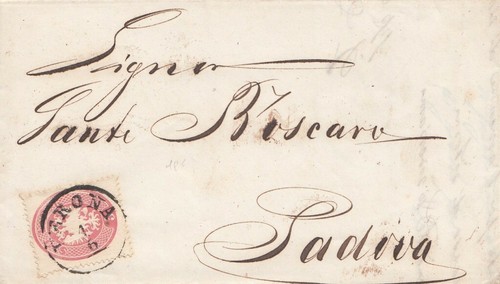 Signor
Sante Boscaro
Padova
VERONA
1
6